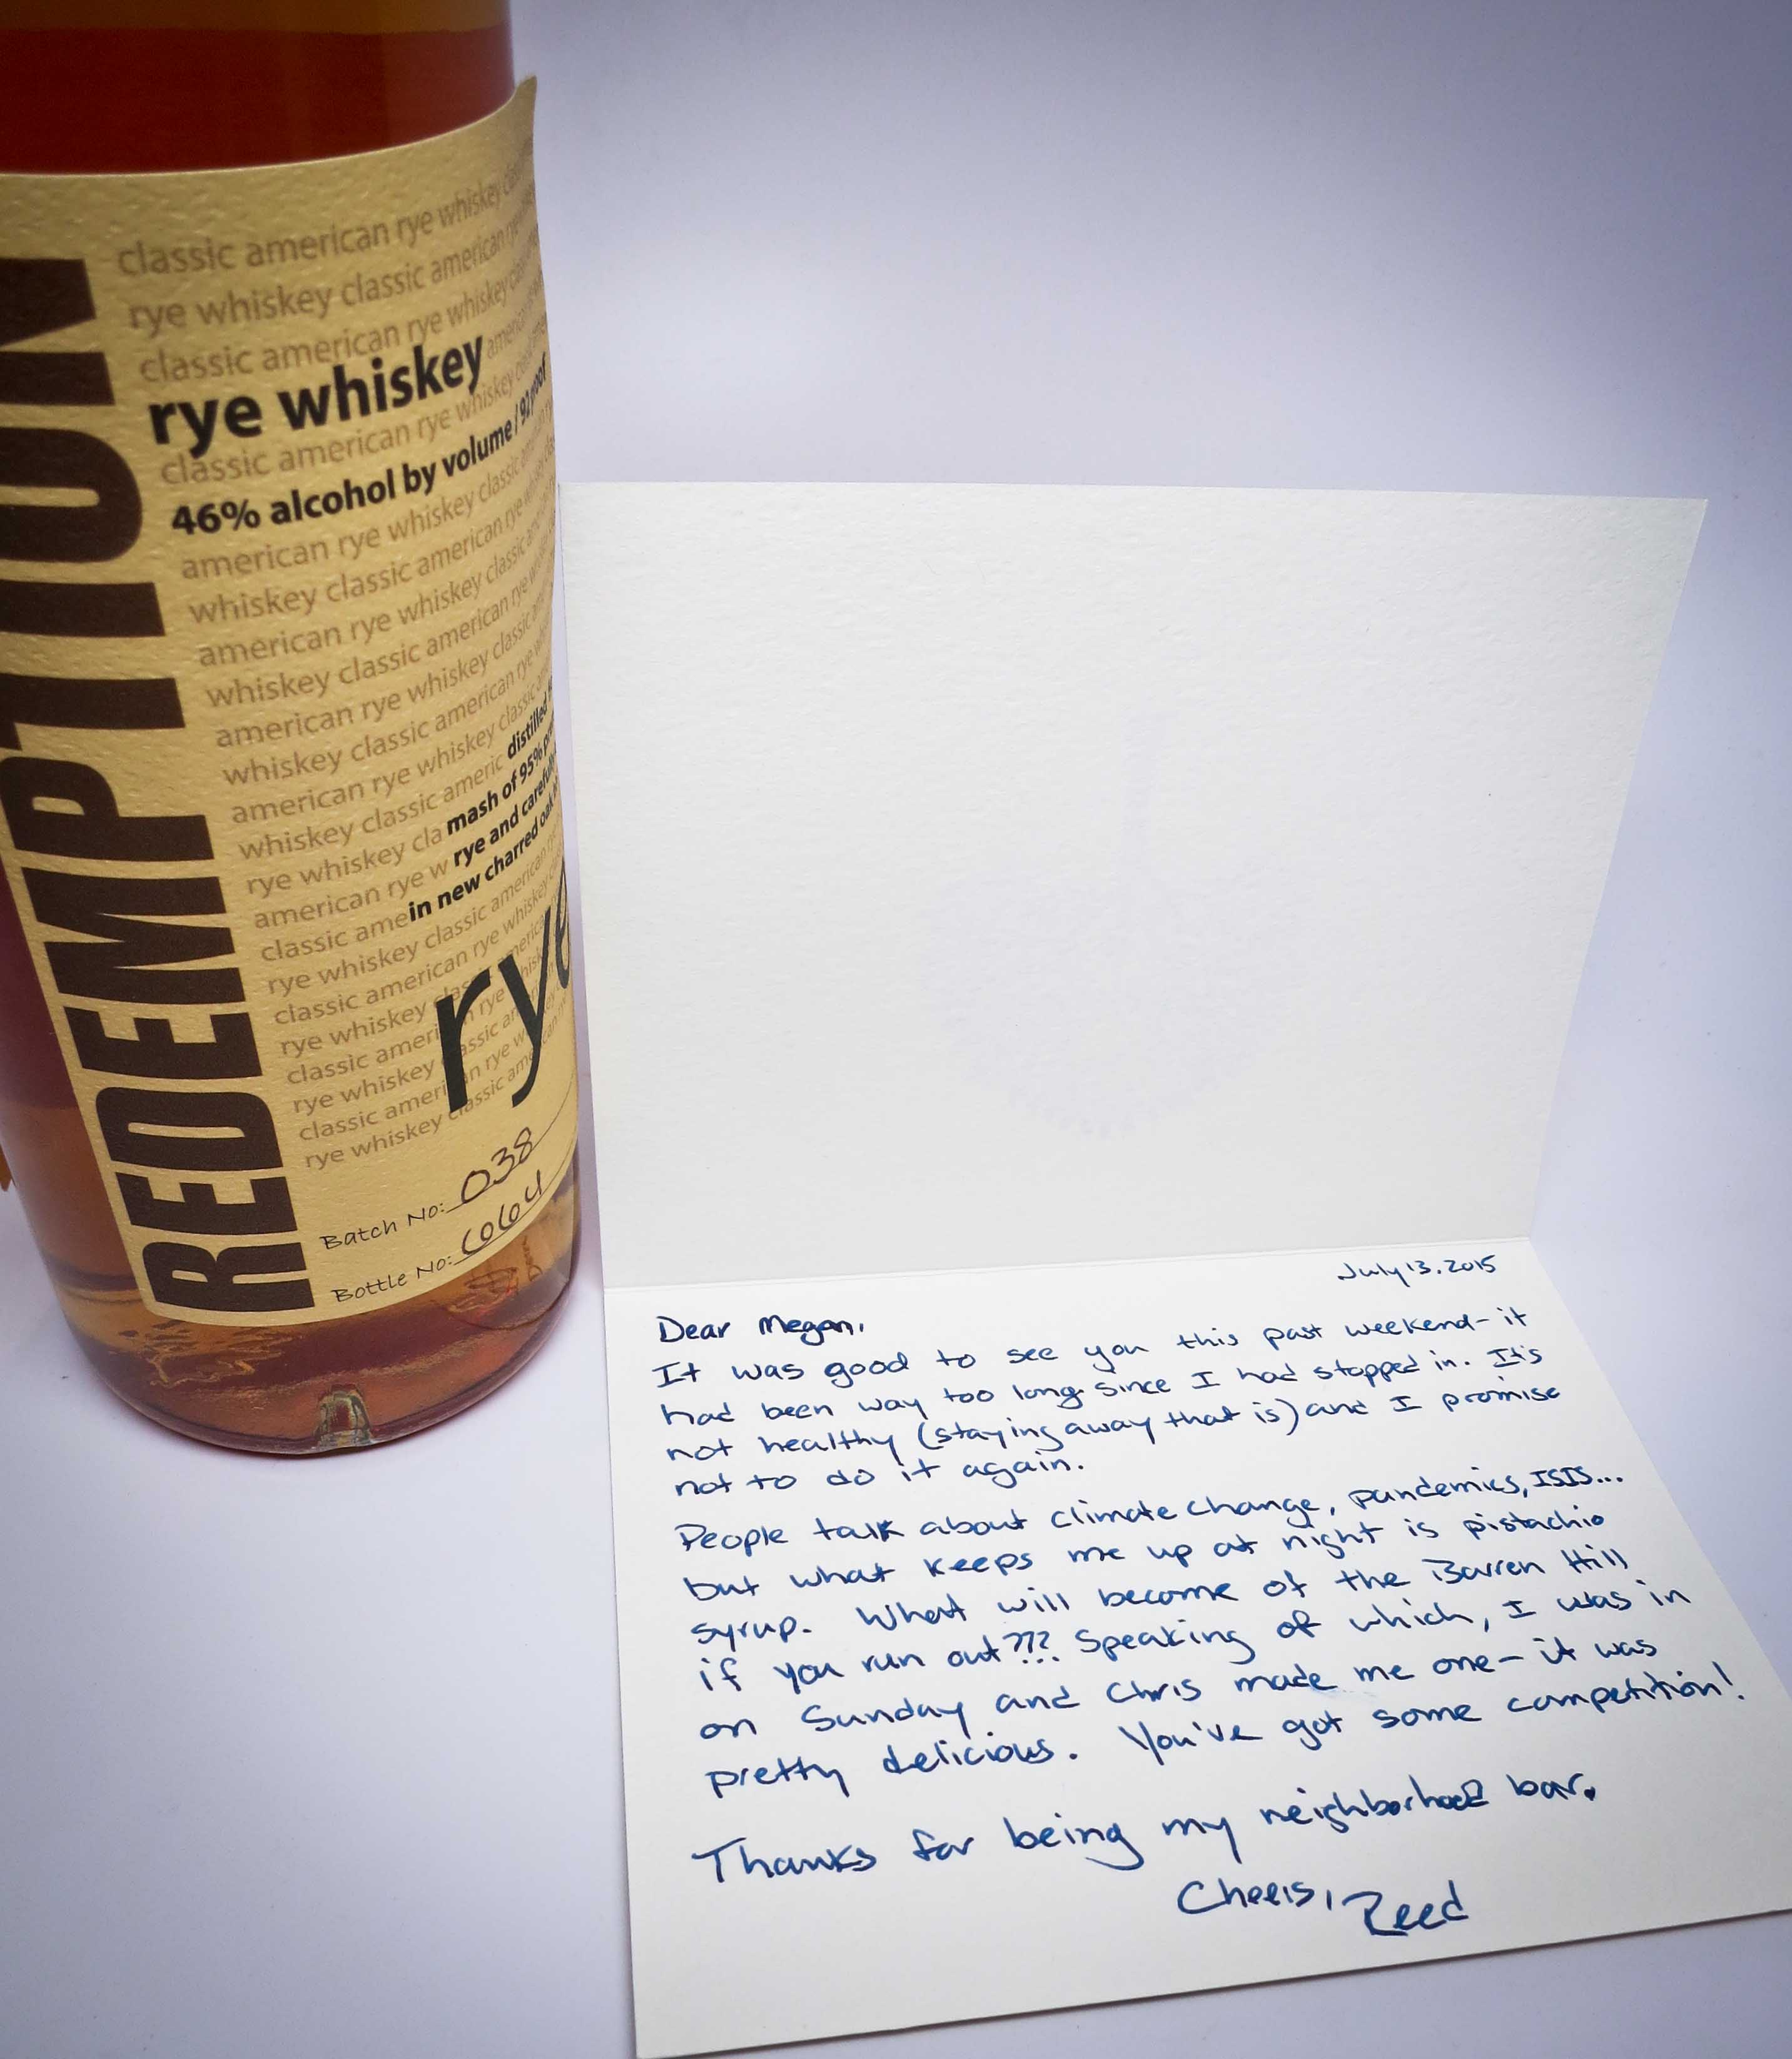 REDEMPTION
classic american rye whiskey
rye whiskey classic american rye
classic american rye whiskey
rye whiskey american
classic american rye whiskey
46% alcohol by volume / 92 proof
american rye whiskey classic
whiskey classic american rye
american rye whiskey classic
whiskey classic american rye
american rye whiskey classic
whiskey classic american rye
american rye whiskey classic
whiskey classic americ distilled
rye whiskey cla mash of 95%
american rye w rye and carefully
classic ame in new charred oak
rye whiskey classic american
classic american rye whiskey
rye whiskey
classic ameri
rye whiskey
classic american rye
rye whiskey classic
rye
Batch No: 038
Bottle No:
July 13, 2015
Dear Megan,
It was good to see you this past weekend - it
had been way too long since I had stopped in. It's
not healthy (staying away that is) and I promise
not to do it again.
People talk about climate change, pandemics, ISIS...
but what keeps me up at night is pistachio
syrup. What will become of the Barren Hill
if you run out??? Speaking of which, I was in
on Sunday and Chris made me one - it was
pretty delicious. You've got some competition!
Thanks for being my neighborhood bar.
Cheers, Reed